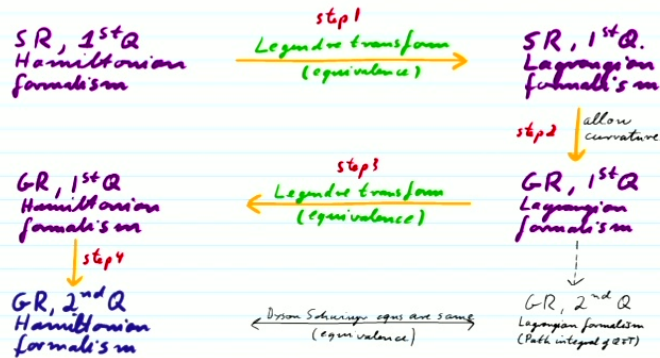 step 1
SR, 1st Q
Hamiltonian
formalism
Legendre transform
(equivalence)
SR, 1st Q.
Lagrangian
formalism
step 2
allow
curvature
step 3
GR, 1st Q
Hamiltonian
formalism
Legendre transform
(equivalence)
GR, 1st Q
Lagrangian
formalism
step 4
GR, 2nd Q
Hamiltonian
formalism
Dyson Schwinger eqns are same
(equivalence)
GR, 2nd Q
Lagrangian formalism
(Path integral of QFT)